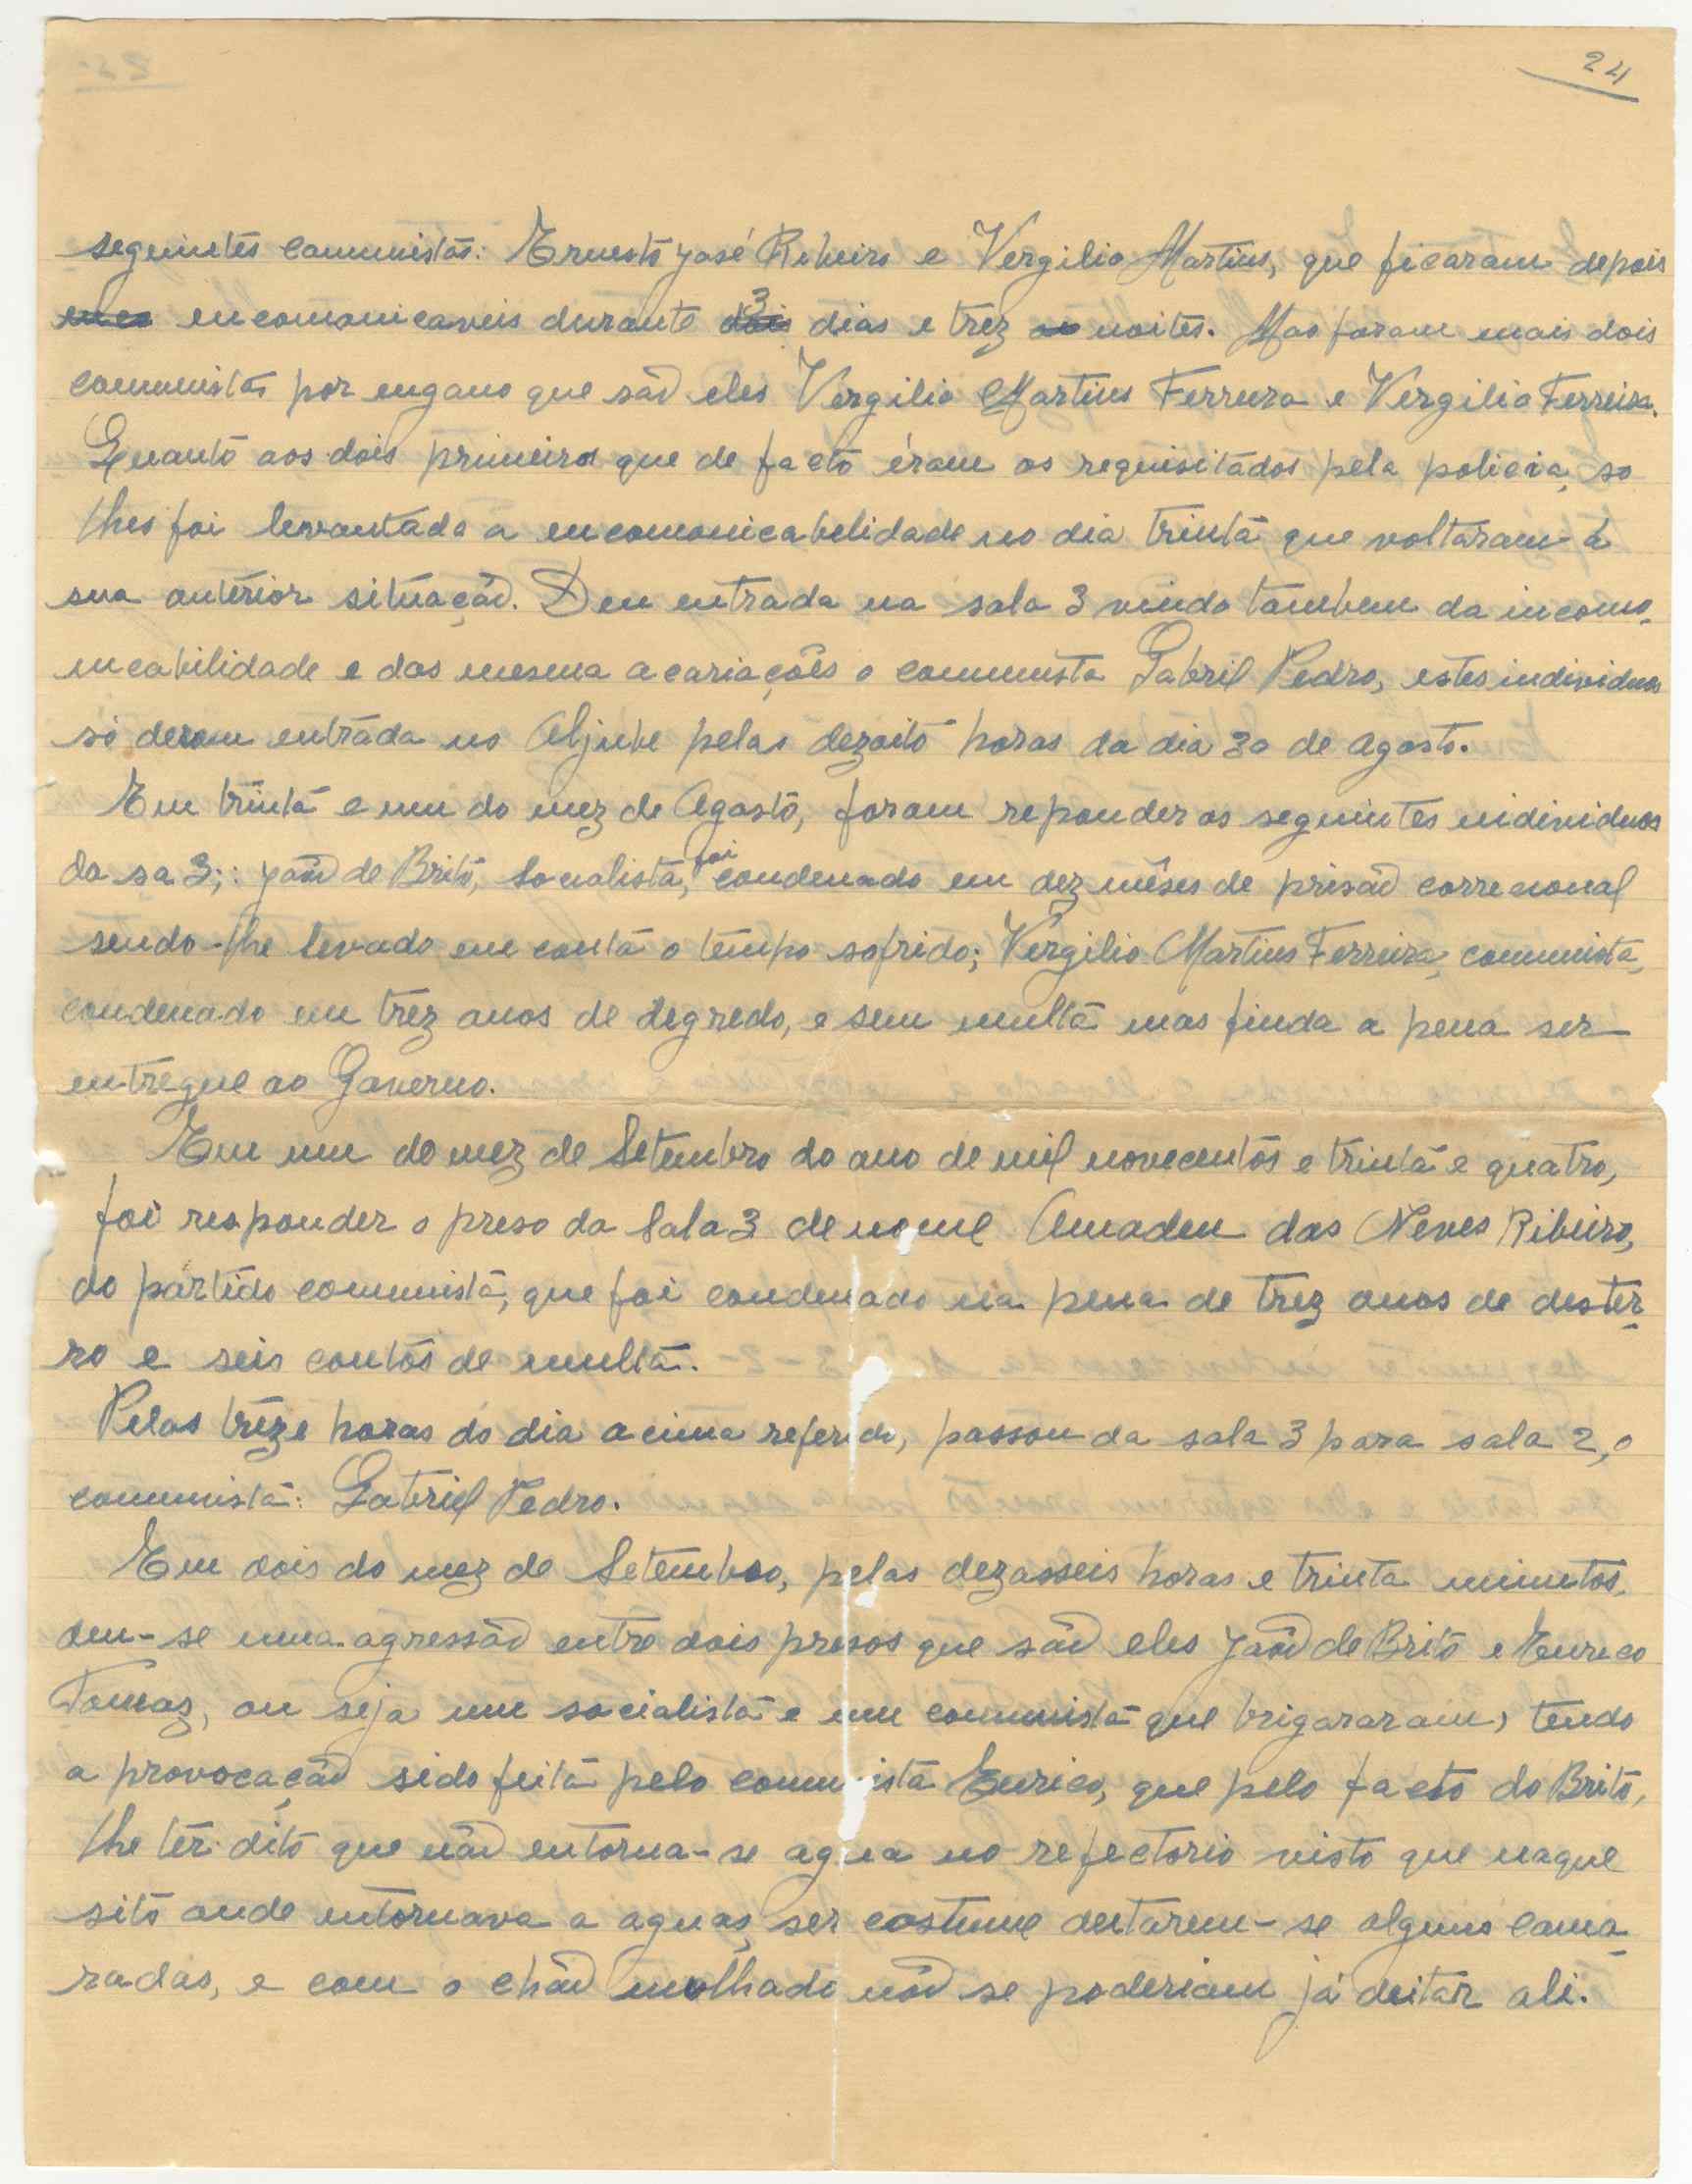 24
seguintes communistas: Ernesto José Ribeiro e Vergilio Martins, que ficaram depois
encomonicaveis durante 3 dias e trez noites. Mas foram mais dois
communistas por engano que são eles Vergilio Martins Ferreira e Vergilio Ferreira.
Quanto aos dois primeiros que de facto éram os requisitados pela policia, so
lhes foi levantada a encomonicabelidade no dia trinta que voltaram á
sua anterior situação. Deu entrada na sala 3 vindo tambem da incomo-
nicabilidade e das mesma acariações o communista Gabriel Pedro, estes individuos
só deram entrada no Aljube pelas dezoito horas do dia 30 de Agosto.
Em trinta e um do mez de Agosto, foram reponder os seguintes individuos
da sa 3;: João de Brito, Socialista, foi condenado em dez mêses de prisão correcional
sendo-lhe levado em conta o tempo sofrido; Vergilio Martins Ferreira, communista,
condenado em trez anos de degredo, e sem multa mas finda a pena ser
entregue ao Governo.
Em um do mez de Setembro do ano de mil novecentos e trinta e quatro,
foi responder o preso da Sala 3 de nome Amadeu das Neves Ribeiro,
do partido communista, que foi condenado na pena de trez anos de dester-
ro e seis contos de multa.
Pelas treze horas do dia acima referido, passou da sala 3 para sala 2, o
communista: Gabriel Pedro.
Em dois do mez de Setembro, pelas dezasseis horas e trinta minutos,
deu-se uma agressão entre dois presos que são eles João de Brito e Eurico
Tomaz, ou seja um socialista e um communista que brigararam, tendo
a provocação sido feita pelo communista Eurico, que pelo facto do Brito,
lhe têr dito que não entorna-se agua no refectorio visto que naquel
sito onde entornava a aguas, ser costume deitarem-se alguns cama-
radas, e com o chão molhado não se poderiam já deitar ali.